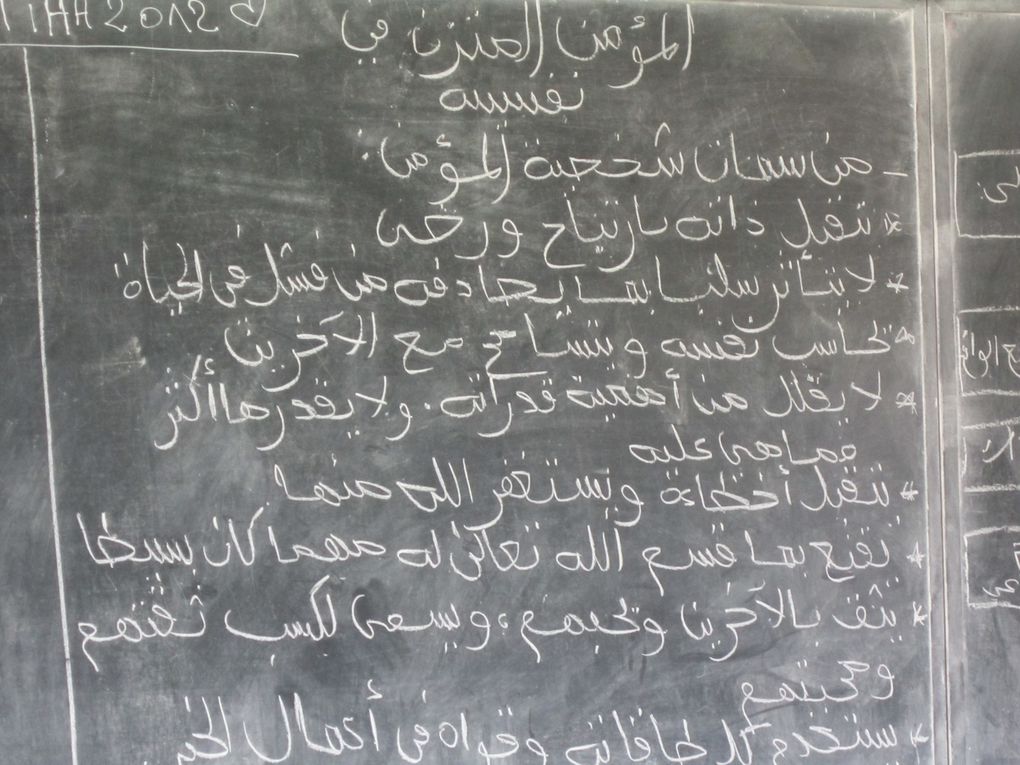 المؤمن المتزن في
نفسيته
- من سمات شخصية المؤمن:
* تتقبل ذاته بارتياح ورضى
* لا يتأثر سلبا بما يصادفه من فشل في الحياة
* تحاسب نفسه ويتسامح مع الآخرين
* لا يقلل من أهمية قدراته. ولا يقدرها أكثر
مما هي عليه
* تتقبل أخطاءه ويستغفر الله منها
* تقنع بما قسم الله تعالى له مهما كان بسيطا
* يثق بالآخرين وتحبهم، ويسعى لكسب ثقتهم
ومحبتهم
* يستخدم كل طاقاته وقواه في أعمال الخير
2012